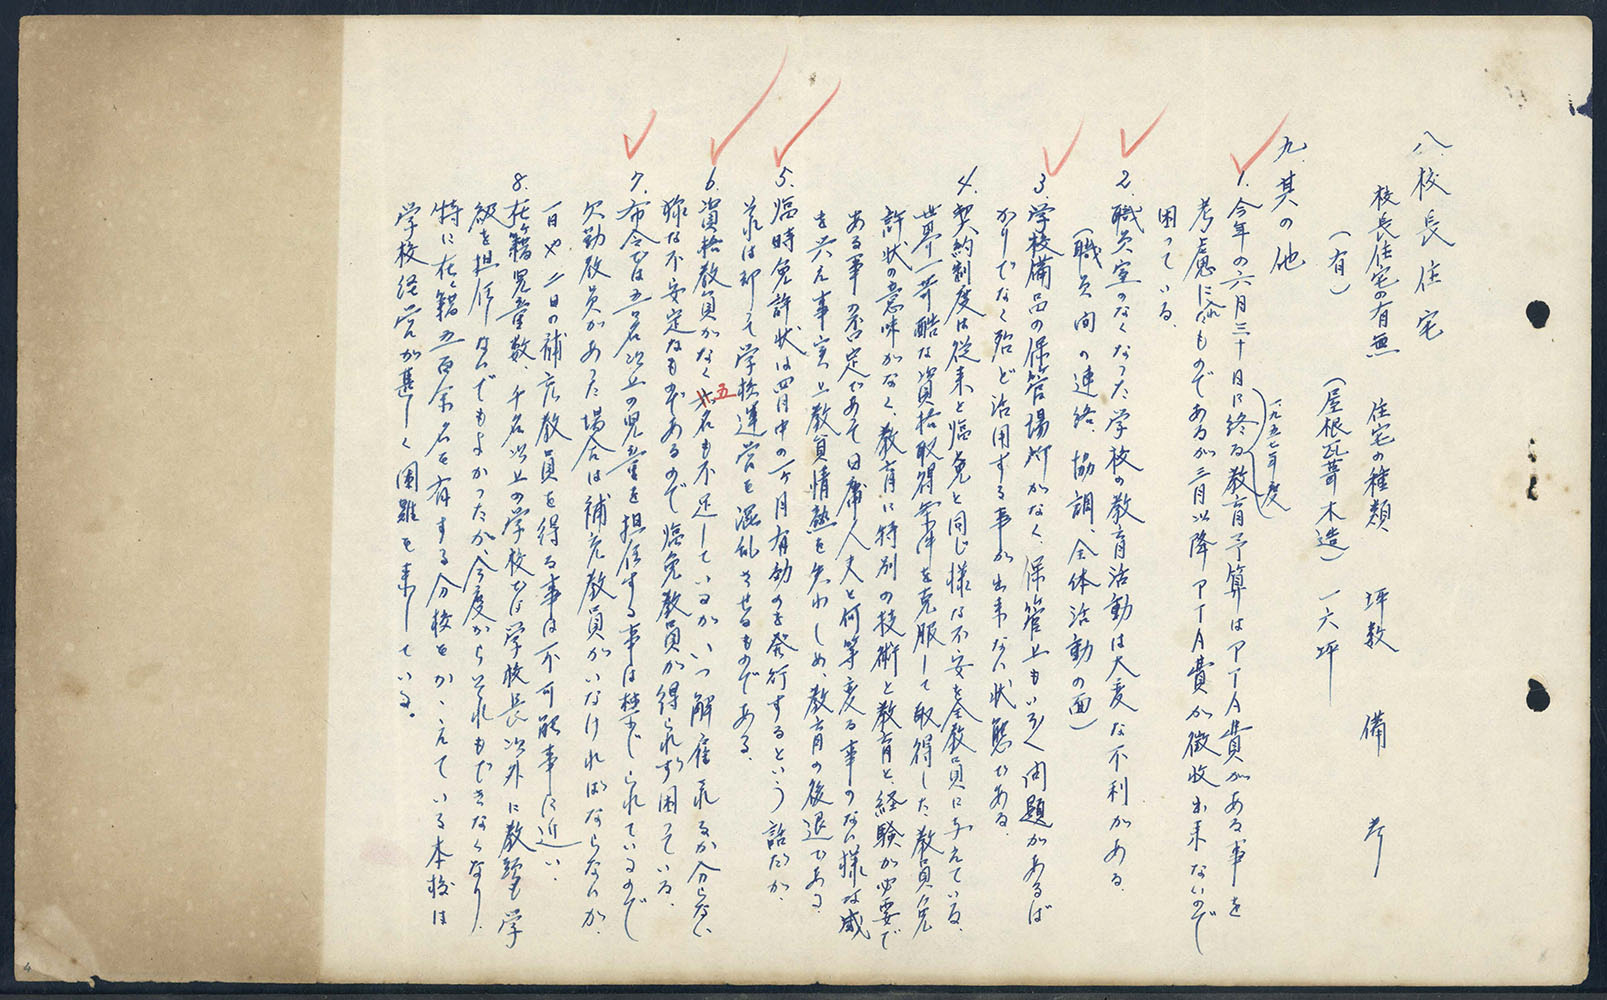 八、校長住宅
校長住宅の有無　住宅の種類　坪数　備考
（有）　（屋根瓦葺木造）　一六坪
九、其の他
（一九五七年度）
1. 今年の六月三十日に終る教育予算はPTA費がある事を
考慮に入れたものであるが三月以降PTA費が徴収出来ないので
困っている。
2. 職員室のなくなった学校の教育活動は大変な不利がある。
（職員間の連絡、協調、全体活動の面）
3. 学校備品の保管場所がなく、保管上もいろいろ問題があるば
かりでなく殆ど活用する事が出来ない状態である。
4. 契約制度は従来と臨免と同じ様な不安を全教員に与えている。
世界一苛酷な資格取得条件を克服して取得した教員免
許状の意味がなく、教育に特別の技術と教育と経験が必要で
ある事の否定であって日傭人夫と何等変る事のない様な感
を与え事実上教員情熱を失わしめ、教育の後退である。
5. 臨時免許状は四月中の一ヶ月有効のを発行するという話だが、
それは却って学校運営を混乱させるものである。
6. 資格教員がなく五名も不足しているが、いつ解雇されるか分らない
様な不安定なものであるので臨免教員が得られず困っている。
7. 布令では五〇名以上の児童を担任する事は禁じられているので
欠勤教員があった場合は補充教員がいなければならないが、
一日や二日の補充教員を得る事は不可能事に近い。
8. 在籍児童数、千名以上の学校では学校長以外に教頭も学
級を担任しないでもよかったが、今度からそれもできなくなり、
特に在籍五百余名を有する分校をかゝえている本校は
学校経営が甚しく困難を来している。
4